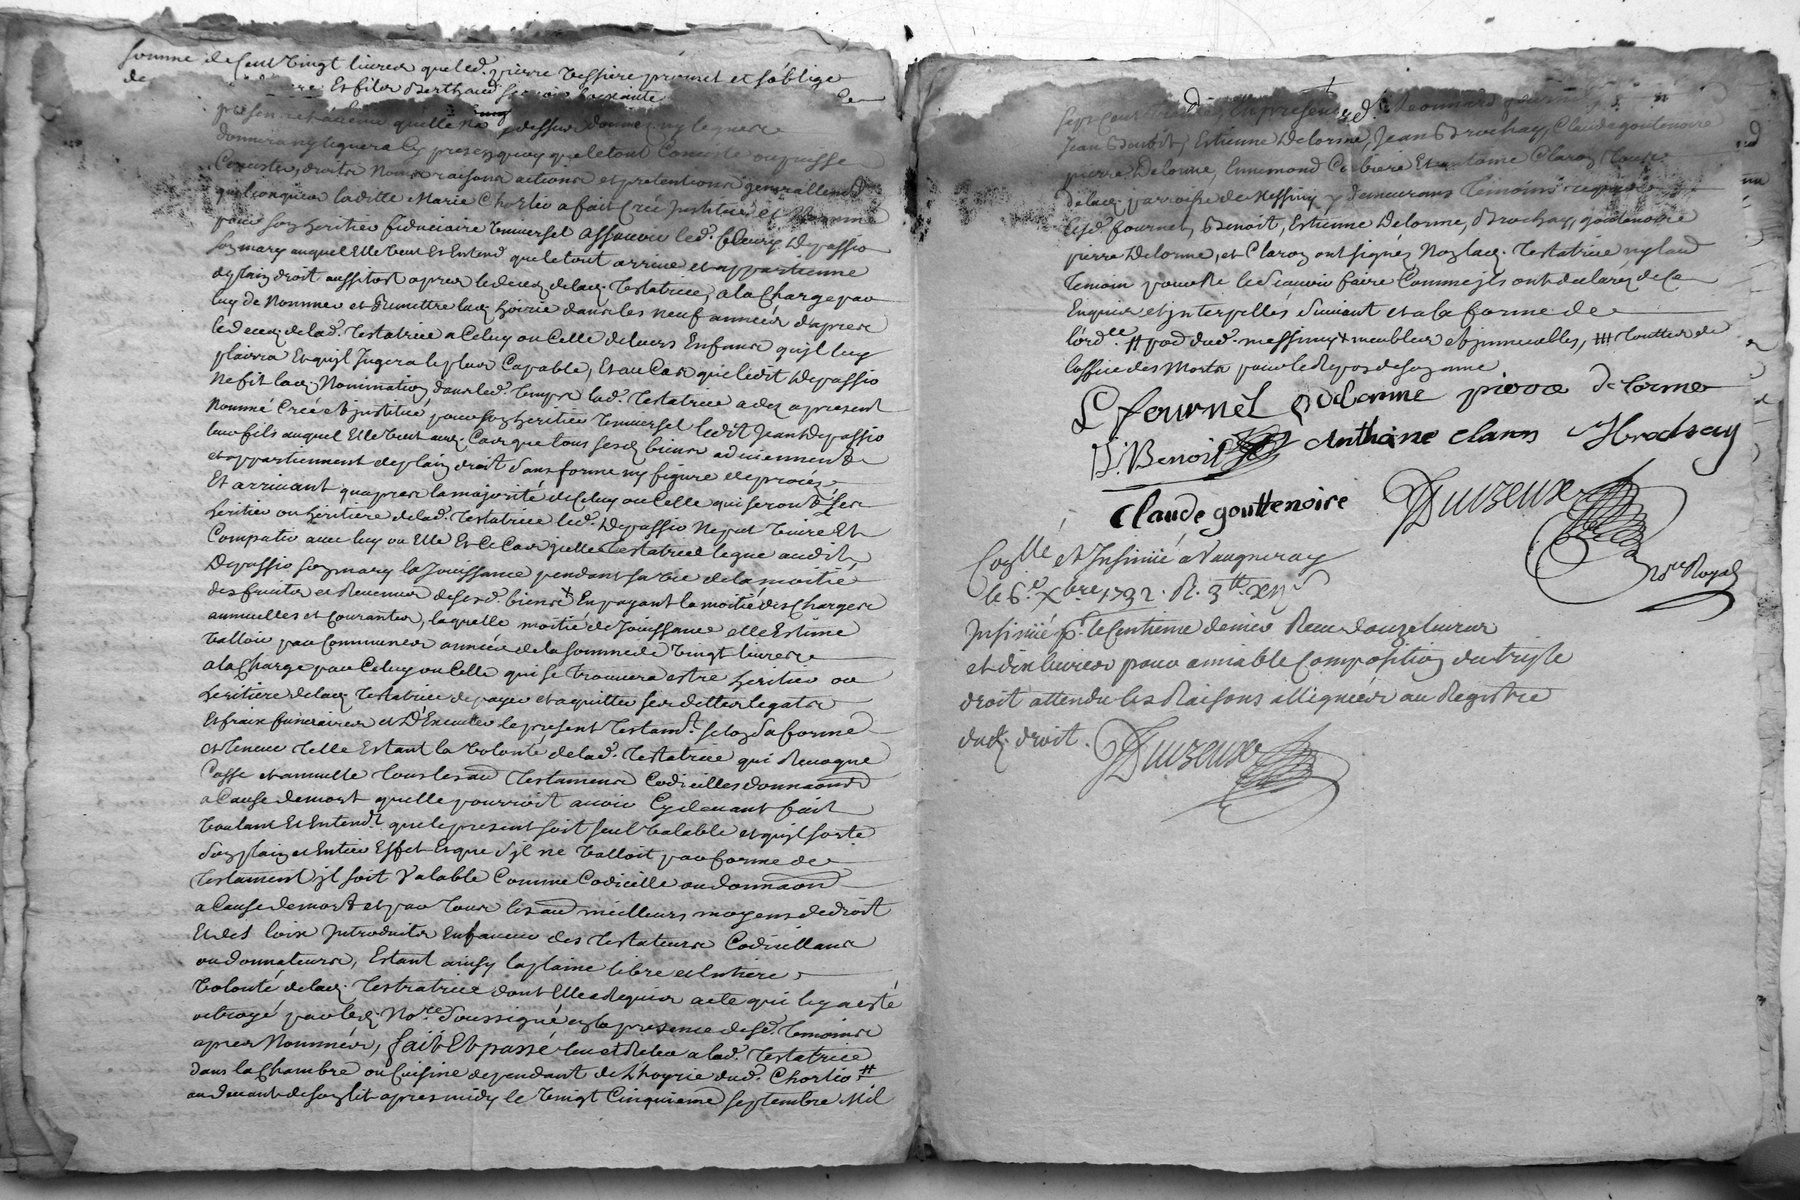 somme de Cent vingt livres que led. pierre tessiere promet et s'oblige
de Estfiler Berthaud soixante
presente quelle na dessus donné ny leguere
donnera ny leguera Cy pres en quoy que le tout Consiste ou puisse
Consister, droits Noms raisons actions et pretentions generallement
quelconques laditte Marie Chorlio a fait Créé Justitué et Nommé
pour son heritier fiduciaire Universel assavoir led. fleury Depassio
son mary auquel Elle veut Et Entend que le tout arrive et appartienne
de plain droit aussitost apres le deces de lad. Testatrice, a la Charge par
luy de Nommer et Remettre lad. hoirie dans les neuf années d'apres
le deces de lad. Testatrice a Celuy ou Celle de leurs Enfans qu'jl luy
plairra Et qu'jl Jugera le plus Capable, Et au Cas que ledit Depassio
ne fit lad. Nomination dans led. Temps lad. Testatrice a des a present
Nommé Créé et Justitué pour son heritier Universel ledit Jean Depassio
leur fils auquel Elle veut aud. Cas que tous sesd. biens adviennent
et appartiennent de plain droit sans forme ny figure de procés
Et arrivant qu'apres la majorité de Celuy ou Celle qui seront Ses
heritier ou heritiere de lad. Testatrice led. Depassio Ne put Vivre Et
Compatir avec luy ou Elle En Ce Cas jcelle Testatrice legue audit
Depassio son mary la Jouissance pendant sa vie de la moitié
des fruits et Revenus de sesd. biens + En payant la moitié des Charges
annuelles et Courantes, laquelle moitié de Jouissance elle Estime
valloir par Communes années la somme de Vingt livres
a la Charge par Celuy ou Celle qui se trouvera estre heritier ou
heritiere de lad. Testatrice de payer et aquitter ses dettes legats
Et fraix funeraires et D'Executer le present Testam.t selon sa forme
et Teneur Telle Estant la volonté de lad. Testatrice qui Revoque
Casse et annulle tous les au Testamens Codicilles donnaons
a Cause de mort qu'elle pourroit avoir Cy devant fait
voulant Et Entend.t que le present soit seul valable et qu'jl sorte
son plain et Entier Effet Et que s'jl ne valloit par forme de
Testament jl soit valable Comme Codicille ou donnaon
a Cause de mort et par tous les au meilleurs moyens de droit
Et des loix Jntroduites En faveur des Testateurs Codicillans
ou donnateurs, Estant ainsy la plaine libre et Entiere
volonté de lad. Testratrice dont Elle a Requis acte qui luy a esté
octroyé par led. No.re soussigné en la presence desd. Temoins
apres Nommés, fait Et passé leu et Releu a lad. Testatrice
dans la Chambre ou Cuisine dependant de L'hoyrie dud. Chorlio #
au devant de son lit apres midy le Vingt Cinquieme septembre Mil
sept Cent trente En presence de d. Leonnard fournel
Jean Benoist, Estienne Delorme, Jean Brochay, Claude goutenoire
pierre Delorme, Ennemond Corbiere Et antoine Claron tous
de lad. parroisse de Messimy y demeurans Temoins requis
lesd. fournel, Benoit, Estienne Delorme, Brochay, goutenoire
pierre Delorme, et Claron ont signés Non lad. Testatrice ny laud
Temoin pour Ne le sçavoir faire Comme jls ont declaré de Ce
Enquis et jnterpellés suivant et a la forme de
l'ord.ce # par dud. messimy + meubles et jmmeubles, ### touttes de
l'office des Morts pour le Repos de son ame
L fournel E Delorme piere delorme
J. Benoist Anthoine Claron J Brochay
Claude gouttenoire Duvzeux
No.re Royal
Con.llé et Insinué à Vaugneray
le 6.e Xbre 1732. R. 3.tt XII s
Insinué p.r le Centieme denier Receu douze livres
et dix livres pour amiable Composition du triple
droit attendu les Raisons alleguées au Registre
dud. droit. Duvzeux